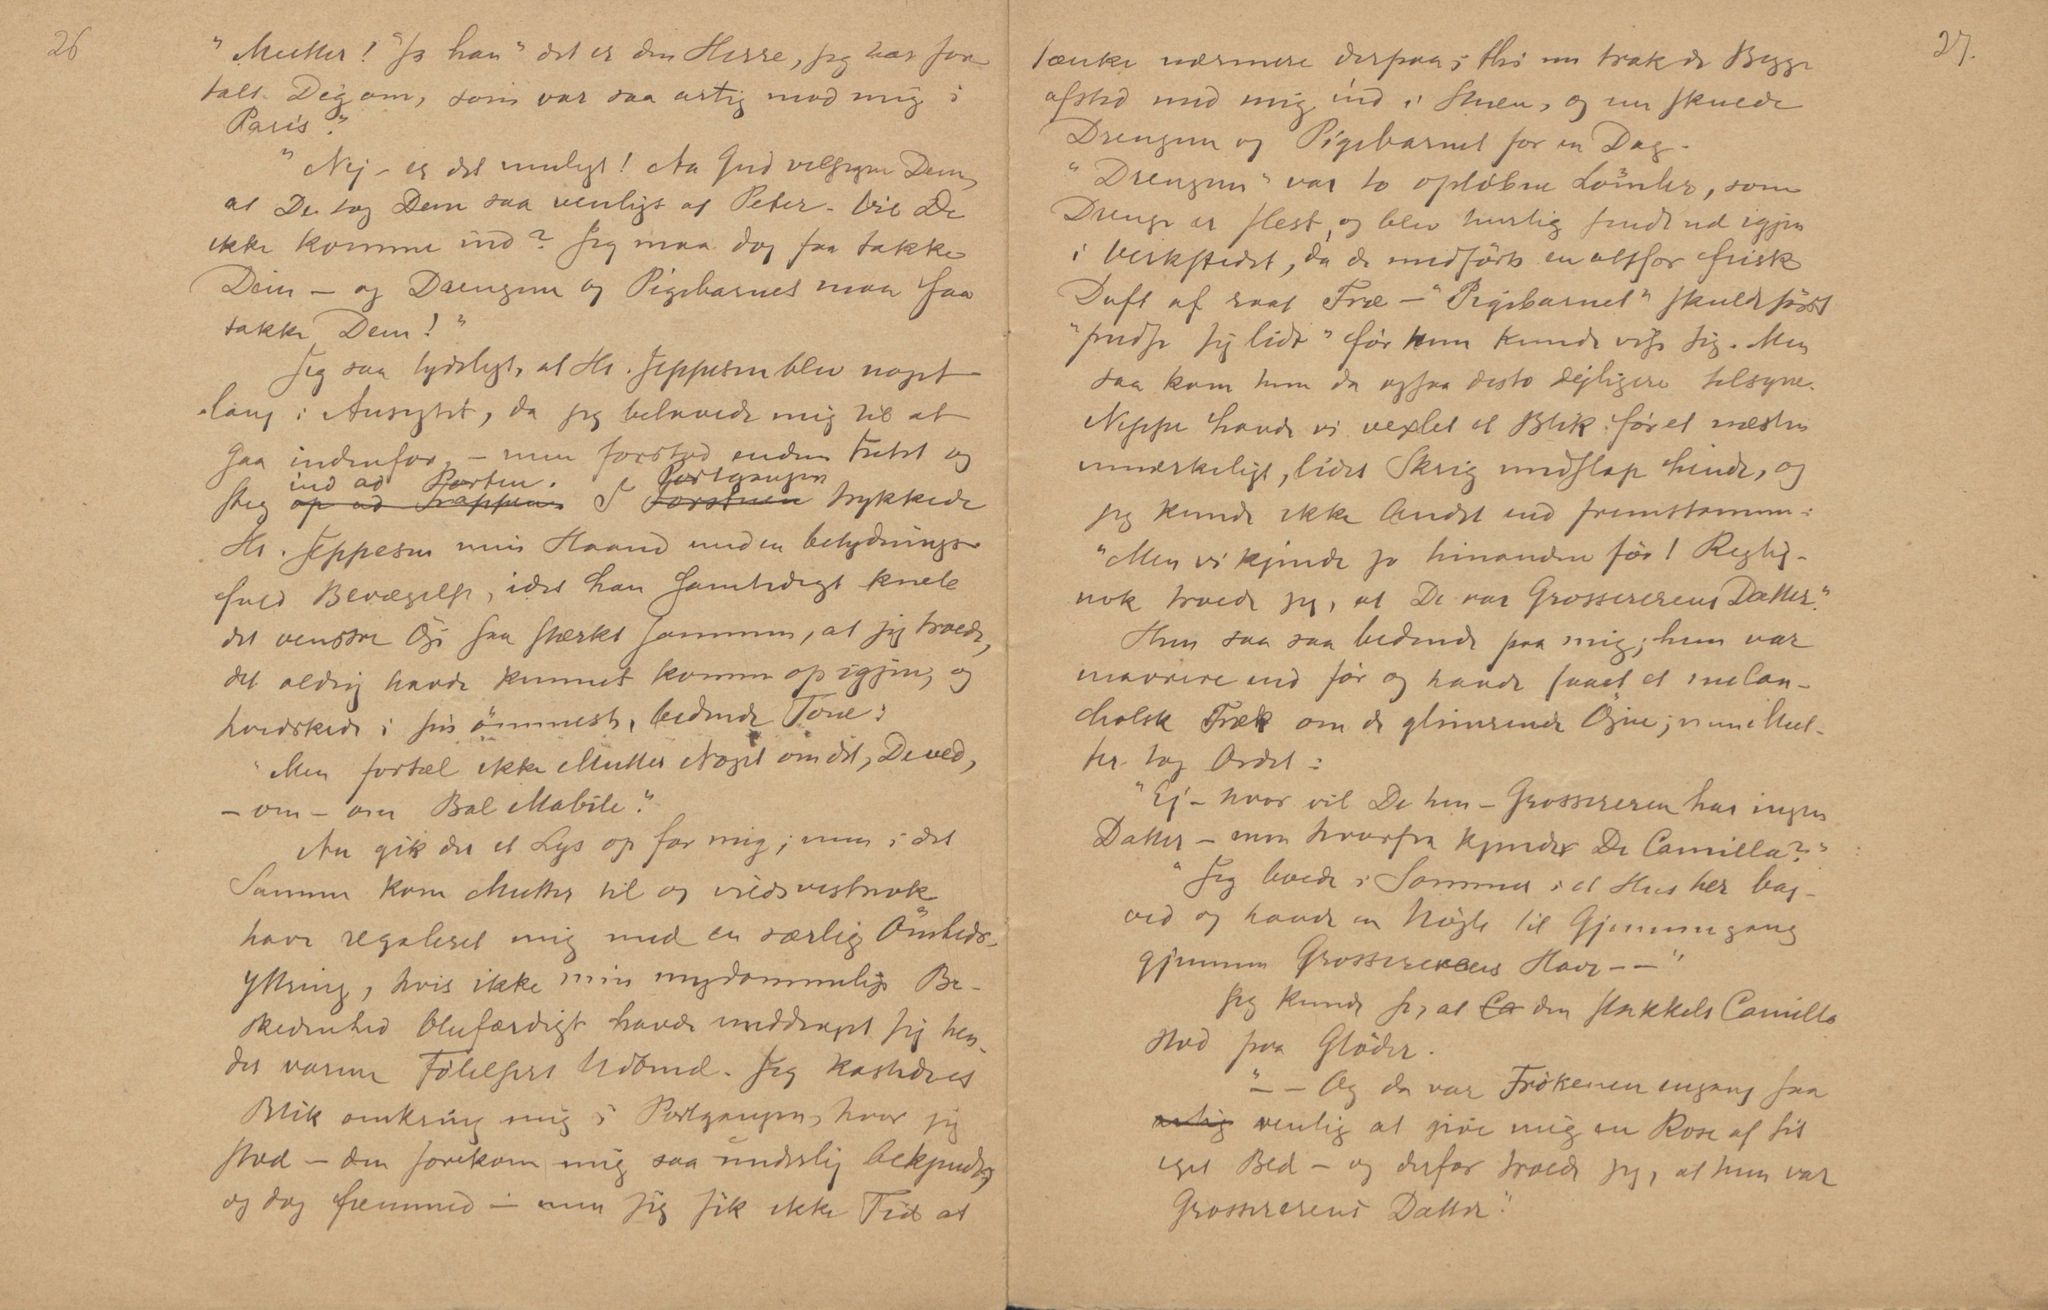 26
"Mutter! "sa han" det er den Herre, jeg har for-
talt Dig om, som var saa artig mod mig i
Paris."
"Nej – er det muligt! Aa Gud velsigne Dem,
at De tog Dem saa venligt af Peter. Vil De
ikke komme ind? Jeg maa dog faa takke
Dem – og Drengene og Pigebarnet maa faa
takke Dem!"
Jeg saa tydeligt, at Hr. Jeppesen blev noget
lang i Ansigtet, da jeg belavede mig til at
gaa indenfor, – men forstod endnu Intet og
ind ad Porten. Portgangen
steg op ad Trappen. I Forstuen trykkede
Hr. Jeppesen min Haand med en betydnings-
fuld Bevægelse, idet han samtidigt kneb
det venstre Öje saa stærkt sammen, at jeg troede,
det aldrig havde kunnet komme op igjen, og
hviskede i sin ömmeste, bedende Tone:
"Men fortæl ikke Mutter Noget om det, De ved,
– om – om Bal Mabile."
Nu gik der et Lys op for mig; men i det
Samme kom Mutter til og vilde vistnok
have regaleret mig med en særlig Ömheds-
yttring, hvis ikke min ungdommelige Be-
skedenhed blufærdigt havde unddraget sig hen-
des varme Fölelsers Udbrud. Jeg kastede et
Blik omkring mig i Portgangen, hvor jeg
stod – den forekom mig saa underlig bekjendt,
og dog fremmed – men jeg fik ikke Tid at
27.
tænke nærmere derpaa; thi nu trak de Begge
afsted med mig ind i Stuen, og nu skuede
Drengene og Pigebarnet for en Dag.
"Drengene" var to oplöbne Lömler, som
Drenge er flest, og blev hurtig sendt ud igjen
i Verkstedet, da de medförte en altfor frisk
Duft af raat Træ – "Pigebarnet" skulde först
"pudse sig lidt" för hun kunde vise sig. Men
saa kom hun da ogsaa desto dejligere tilsyne.
Neppe havde vi vexlet et Blik för et næsten
umærkeligt, lidet Skrig undslap hende, og
jeg kunde ikke Andet end fremstamme:
"Men vi kjende jo hinanden för! Rigtig-
nok troede jeg, at De var Grossererens Datter."
Hun saa saa bedende paa mig; hun var
mavrere end för og havde faaet et melan-
cholsk Træk om de glimrende Öjne; men Mut-
ter tog Ordet:
"Ej – hvor vil De hen – Grossereren har ingen
Datter – men hvorfra kjender De Camilla?"
"Jeg boede i Sommer i et Hus her bag-
ved og havde en Nögle til Gjennemgang
gjennem Grossererens Have – –"
Jeg kunde se, at Ca den stakkels Camilla
stod paa Glöder.
"– – Og da var Frökenen engang saa
artig venlig at give mig en Rose af sit
eget Bed – og derfor troede jeg, at hun var
Grossererens Datter."